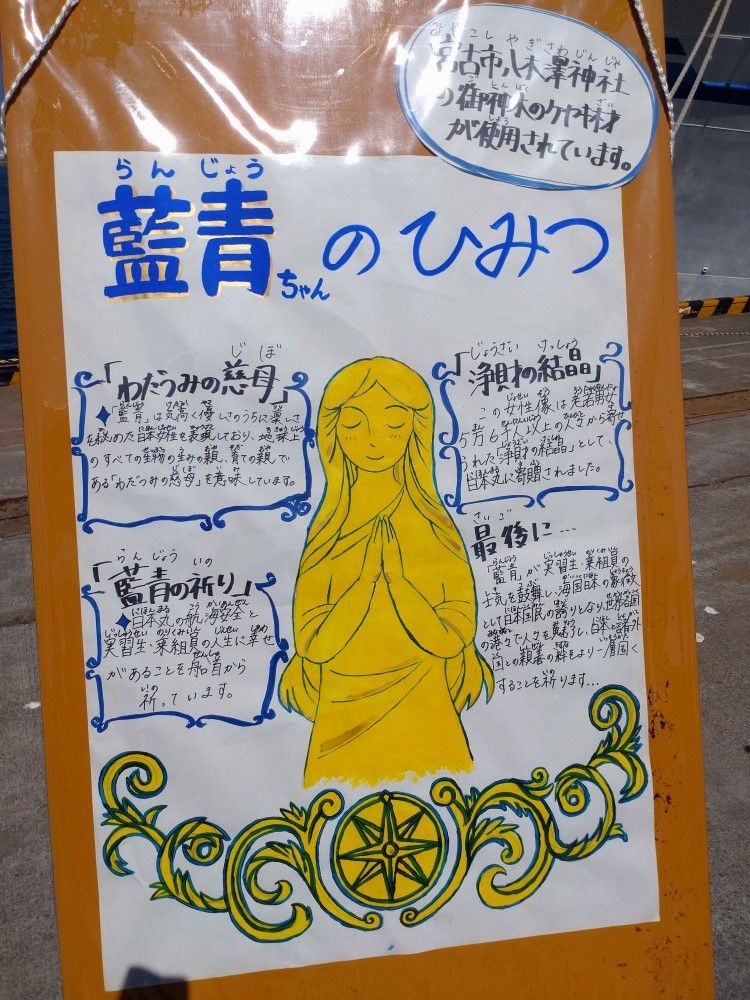 みやこし やぎさわじんじゃ
宮古市八木澤神社
の御神木のケヤキ材
が使用されています。
らんじょう
藍青ちゃんのひみつ
じぼ
「わだつみの慈母」
「藍青」は気高く優しさのうちに凛しさ
を秘めた日本女性を表現しており、地球上
のすべての生物の生みの親、育ての親で
ある「わだつみの慈母」を意味しています。
らんじょう いの
「藍青の祈り」
日本丸の航海安全と
実習生・乗組員の人生に幸せ
があることを船首から
祈っています。
じょうざい けっしょう
「浄財の結晶」
この女性像は老若男女
5万6千人以上の人々から寄せ
られた「浄財の結晶」として、
日本丸に寄贈されました。
さいご
最後に…
「藍青」が実習生・乗組員の
士気を鼓舞し、海国日本の象徴
として日本国民の誇りとなり、世界各国
の港々で人々を魅了し、日本と諸外
国との親善の絆をより一層固く
することを祈ります…